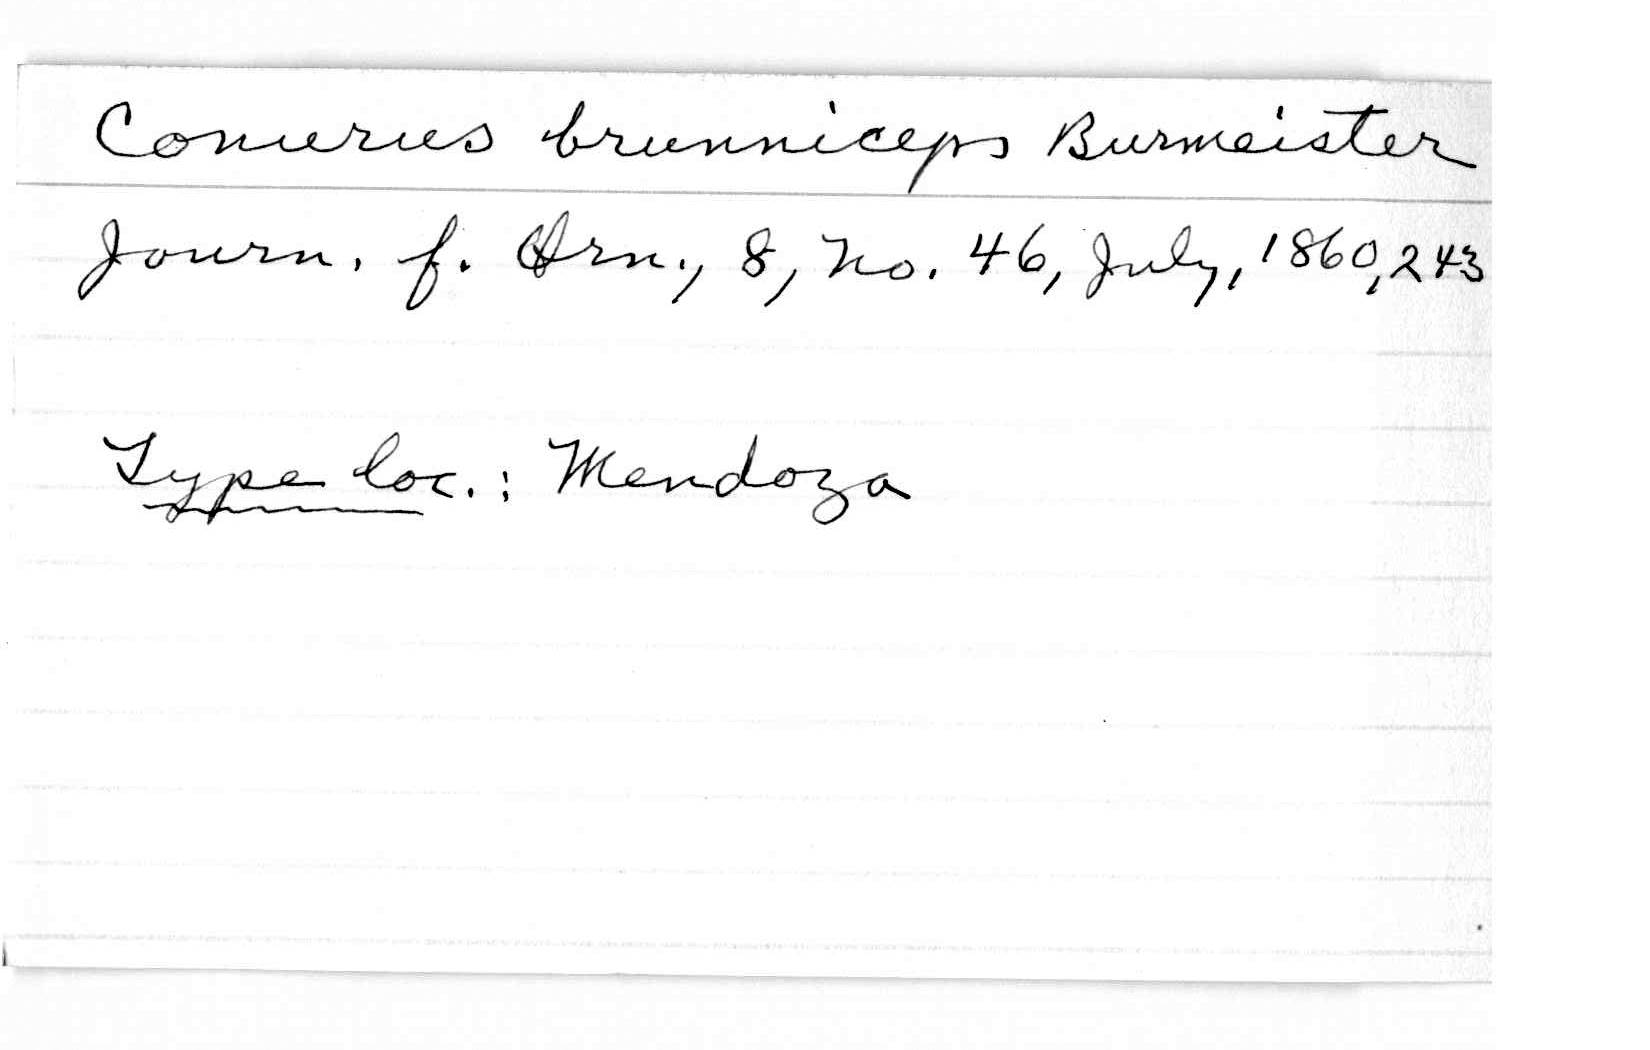 Conurus brunniceps Burmeister
Journ. f. Orn., 8, no. 46, July, 1860, 243
Type loc.: Mendoza